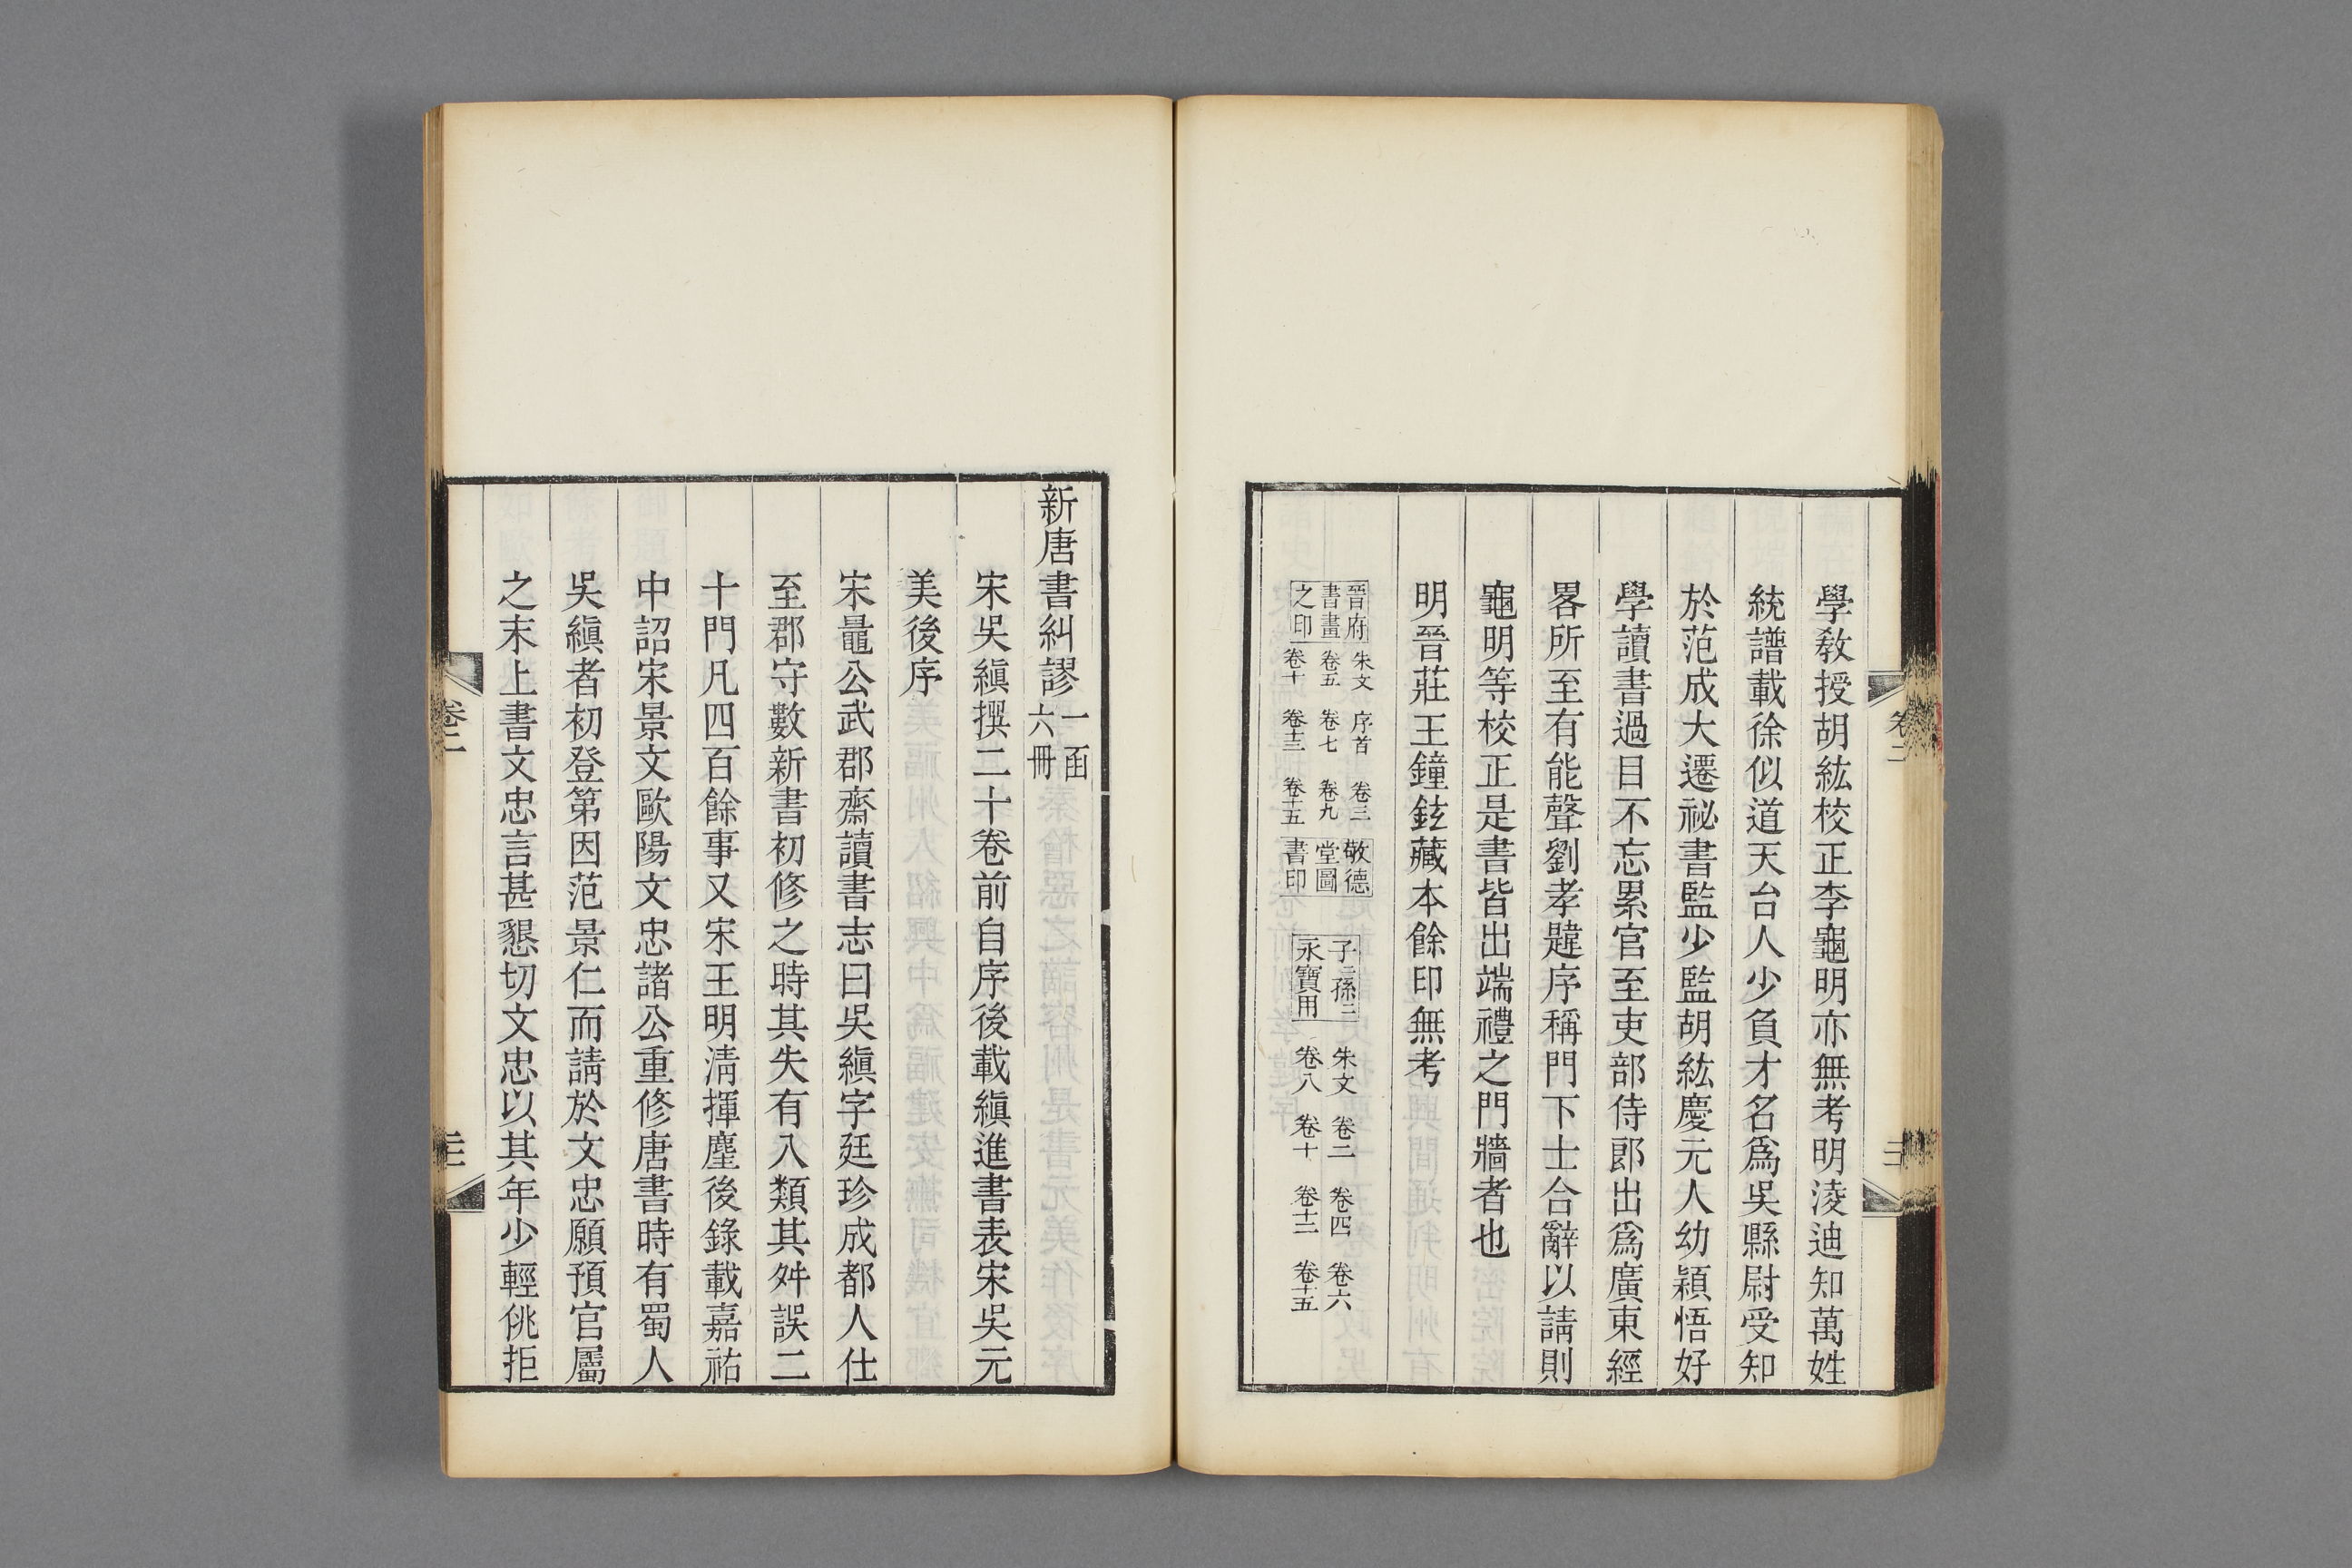 學教授胡紘校正李龜明亦無考明淩迪知萬姓
統譜載徐似道天台人少負才名爲吳縣尉受知
於范成大遷祕書監少監胡紘慶元人幼穎悟好
學讀書過目不忘累官至吏部侍郎出爲廣東經
畧所至有能聲劉孝韙序稱門下士合辭以請則
龜明等校正是書皆出端禮之門牆者也
明晉莊王鐘鉉藏本餘印無考
晉府書畫之印
朱文 序首 卷三
卷五 卷七 卷九
卷十 卷十三 卷十五
敬德堂圖書印
子二孫二永寶用
朱文 卷二 卷四 卷六
卷八 卷十 卷十二 卷十五
卷二
新唐書糾謬 一函六冊
宋吳縝撰二十卷前自序後載縝進書表宋吳元
美後序
宋鼂公武郡齋讀書志曰吳縝字廷珍成都人仕
至郡守數新書初修之時其失有八類其舛誤二
十門凡四百餘事又宋王明淸揮麈後錄載嘉祐
中詔宋景文歐陽文忠諸公重修唐書時有蜀人
吳縝者初登第因范景仁而請於文忠願預官屬
之末上書文忠言甚懇切文忠以其年少輕佻拒
卷二